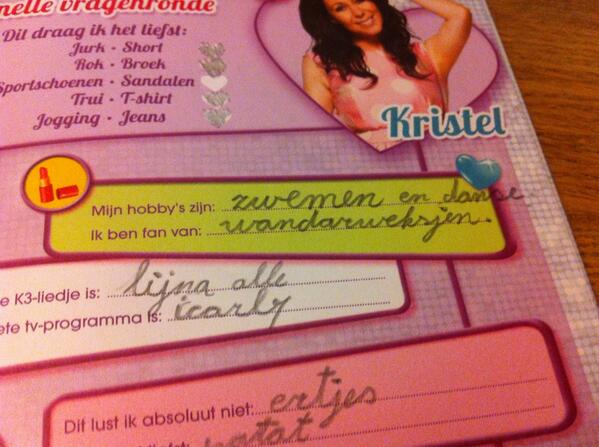 nelle vragenronde
Dit draag ik het liefst:
Jurk · Short
Rok · Broek
Sportschoenen · Sandalen
Trui · T-shirt
Jogging · Jeans
Kristel
Mijn hobby's zijn: zwemen en danse
Ik ben fan van: wandarweksjen.
e K3-liedje is: lijna alle
ete tv-programma is: icarly
Dit lust ik absoluut niet: ertjes
patat